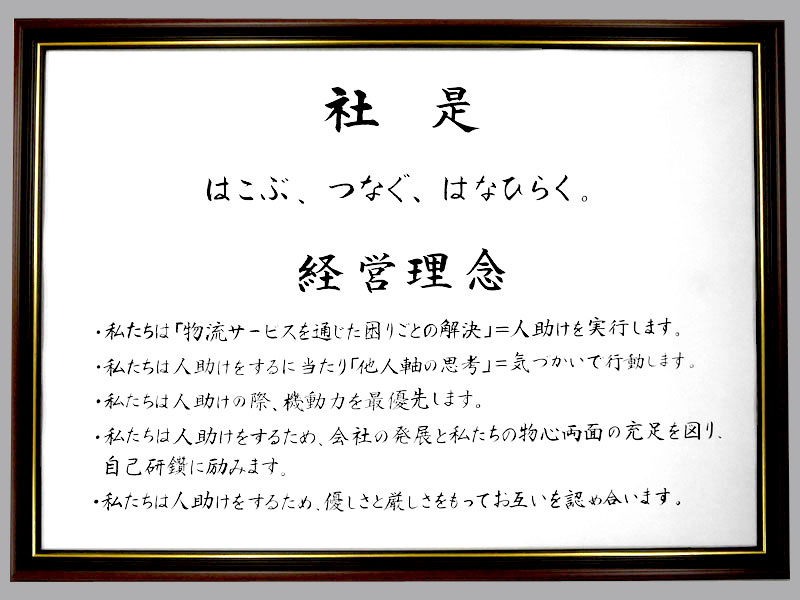 社 是
はこぶ、つなぐ、はなひらく。
経営理念
・私たちは「物流サービスを通じた困りごとの解決」＝人助けを実行します。
・私たちは人助けをするに当たり「他人軸の思考」＝気づかいで行動します。
・私たちは人助けの際、機動力を最優先します。
・私たちは人助けをするため、会社の発展と私たちの物心両面の充足を図り、
自己研鑽に励みます。
・私たちは人助けをするため、優しさと厳しさをもってお互いを認め合います。